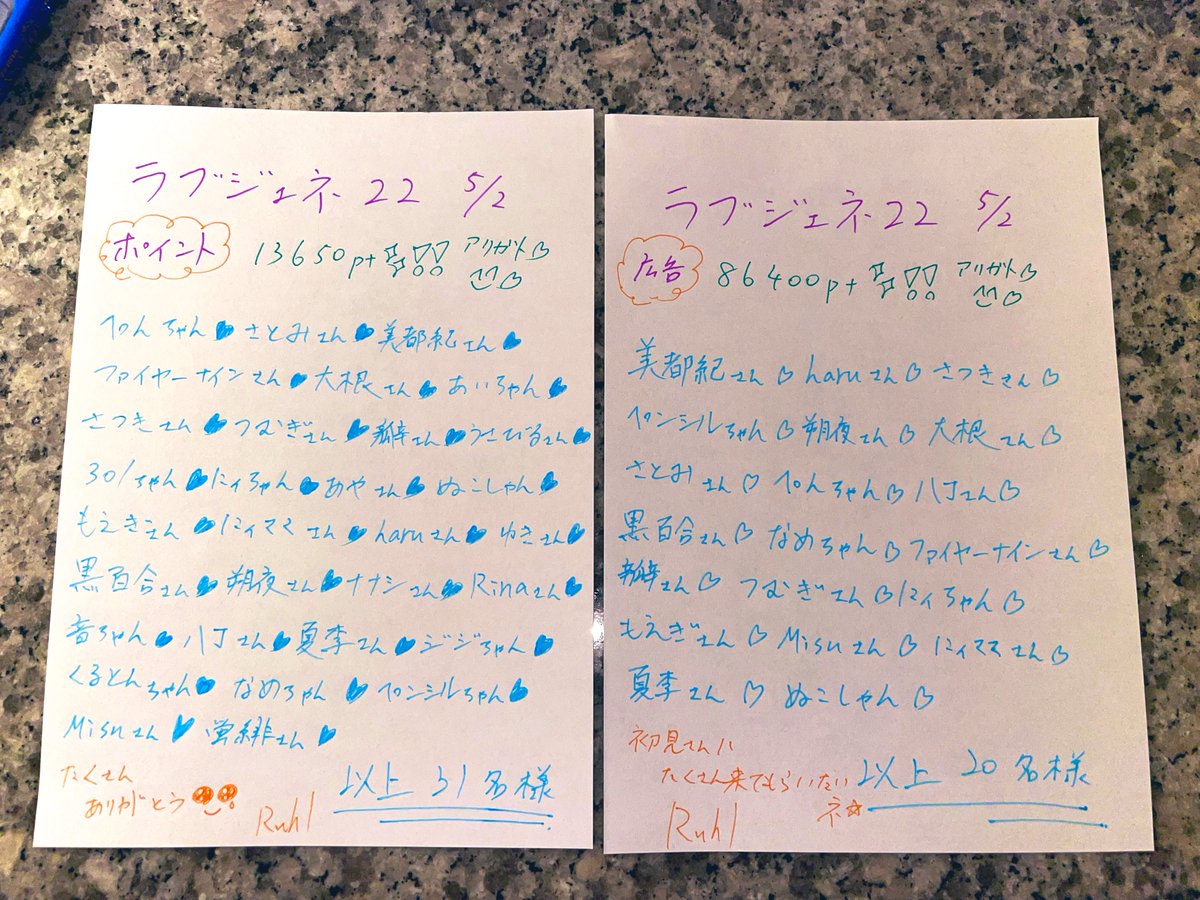 ラブジェネ22 5/2
ポイント 13650pt アリガト
ぺんちゃん さとみさん 美都紀さん
ファイヤーナインさん 大根さん あいちゃん
さつきさん つむぎさん 瓣さん うさびるさん
301ちゃん にィちゃん あやさん ぬこしゃん
もえぎさん にィママさん haruさん ゆきさん
黒百合さん 朔夜さん ナナシさん Rinaさん
音ちゃん 八丁さん 夏季さん ジジちゃん
くるとんちゃん なめちゃん ペンシルちゃん
Misuさん 蛍緋さん
たくさん
ありがとう
Ruhl
以上 31名様
ラブジェネ22 5/2
広告 86400pt アリガト
美都紀さん haruさん さつきさん
ペンシルちゃん 朔夜さん 大根さん
さとみさん ぺんちゃん 八丁さん
黒百合さん なめちゃん ファイヤーナインさん
瓣さん つむぎさん にィちゃん
もえぎさん Misuさん にィママさん
夏季さん ぬこしゃん
初見さんに
たくさん来てもらいたい
ネ☆
Ruhl
以上 20名様